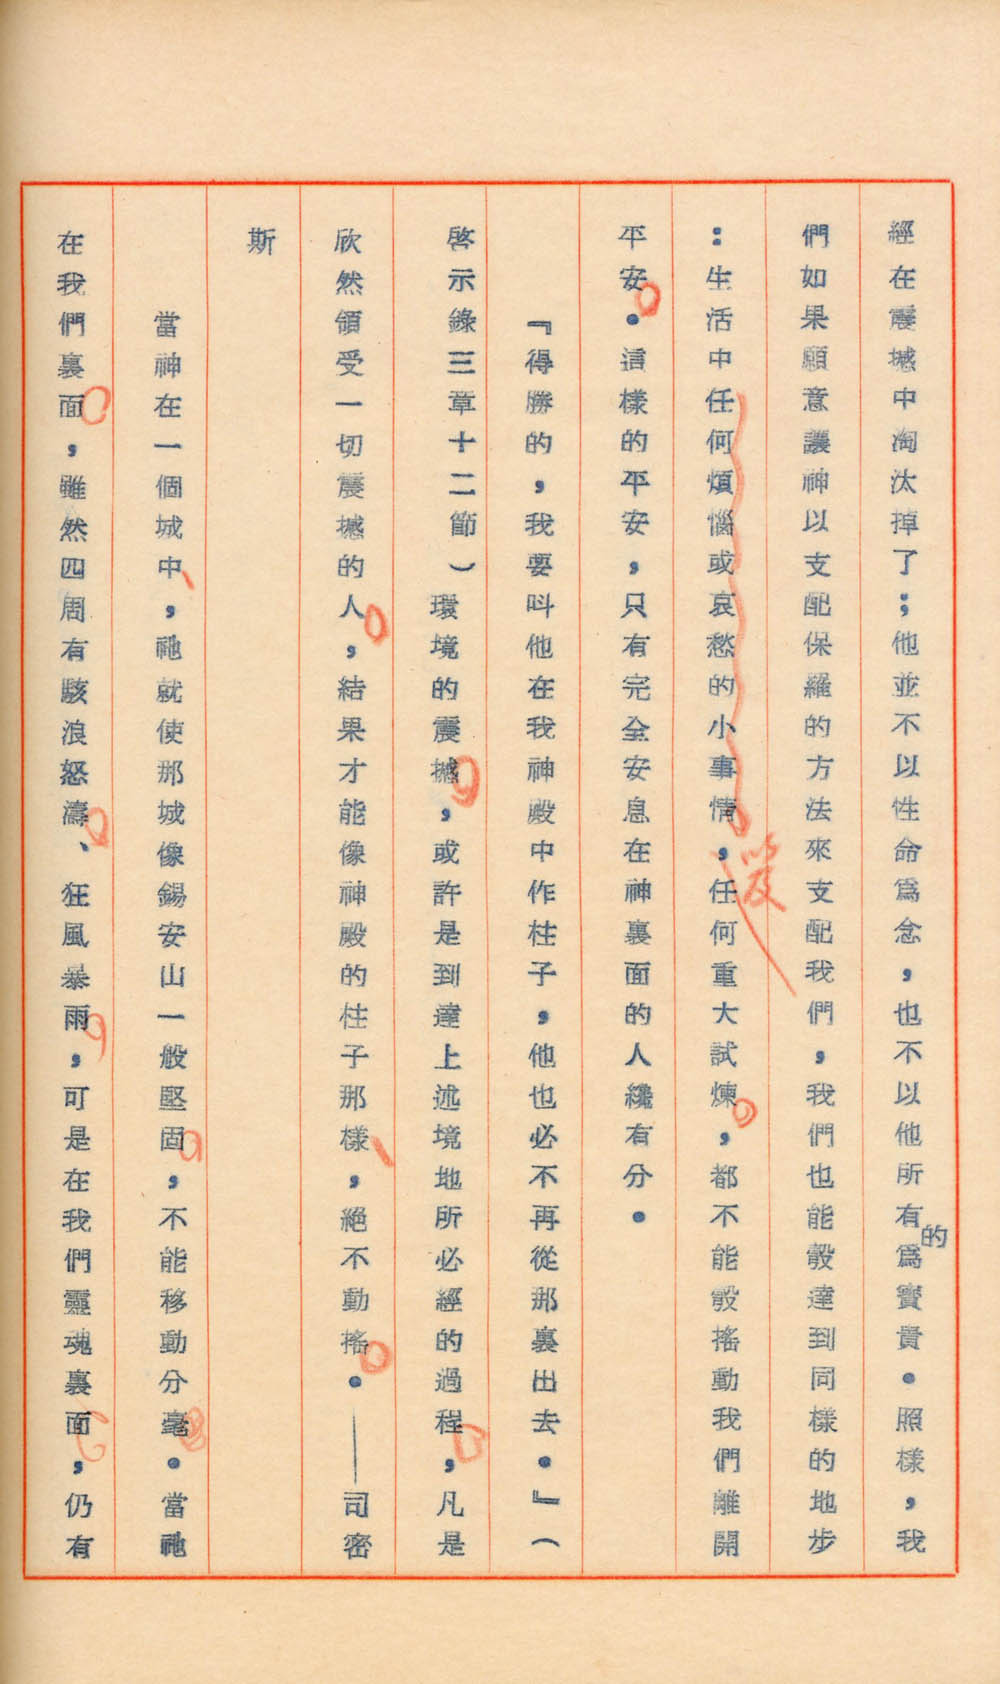 經在震撼中淘汰掉了；他並不以性命爲念，也不以他所有的爲寶貴。照樣，我
們如果願意讓神以支配保羅的方法來支配我們，我們也能彀達到同樣的地步
：生活中任何煩惱或哀愁的小事情，任何重大試煉，都不能彀搖動我們離開
平安。這樣的平安，只有完全安息在神裏面的人纔有分。
『得勝的，我要叫他在我神殿中作柱子，他也必不再從那裏出去。』（
啓示錄三章十二節）環境的震撼，或許是到達上述境地所必經的過程，凡是
欣然領受一切震撼的人，結果才能像神殿的柱子那樣，絕不動搖。——司密
斯
當神在一個城中，祂就使那城像錫安山一般堅固，不能移動分毫。當祂
在我們裏面，雖然四周有駭浪怒濤、狂風暴雨，可是在我們靈魂裏面，仍有